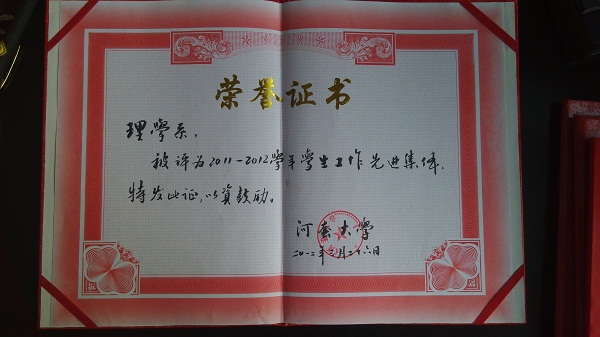 荣誉证书
理學系，
被评为2011-2012學年學生工作先进集体，
特发此证，以資鼓励。
河套大學
二〇一二年 月二十六日